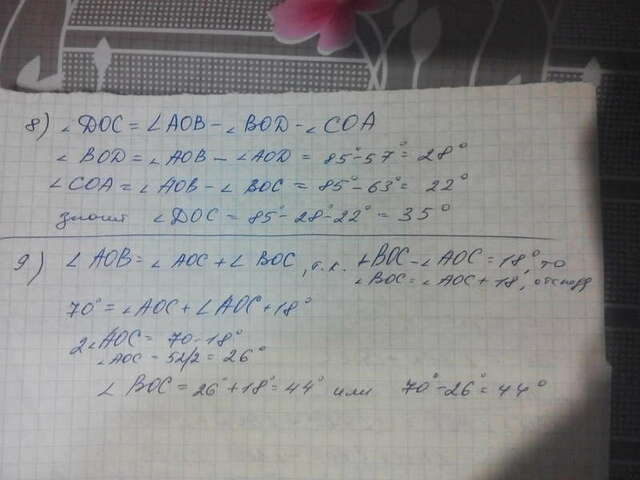 8) ∠DOC = ∠AOB - ∠BOD - ∠COA
∠BOD = ∠AOB - ∠AOD = 85° - 57° = 28°
∠COA = ∠AOB - ∠BOC = 85° - 63° = 22°
значит ∠DOC = 85° - 28° - 22° = 35°
9) ∠AOB = ∠AOC + ∠BOC, т.к. ∠BOC - ∠AOC = 18°, то
∠BOC = ∠AOC + 18°, отсюда
70° = ∠AOC + ∠AOC + 18°
2∠AOC = 70 - 18°
∠AOC = 52/2 = 26°
∠BOC = 26° + 18° = 44° или 70° - 26° = 44°